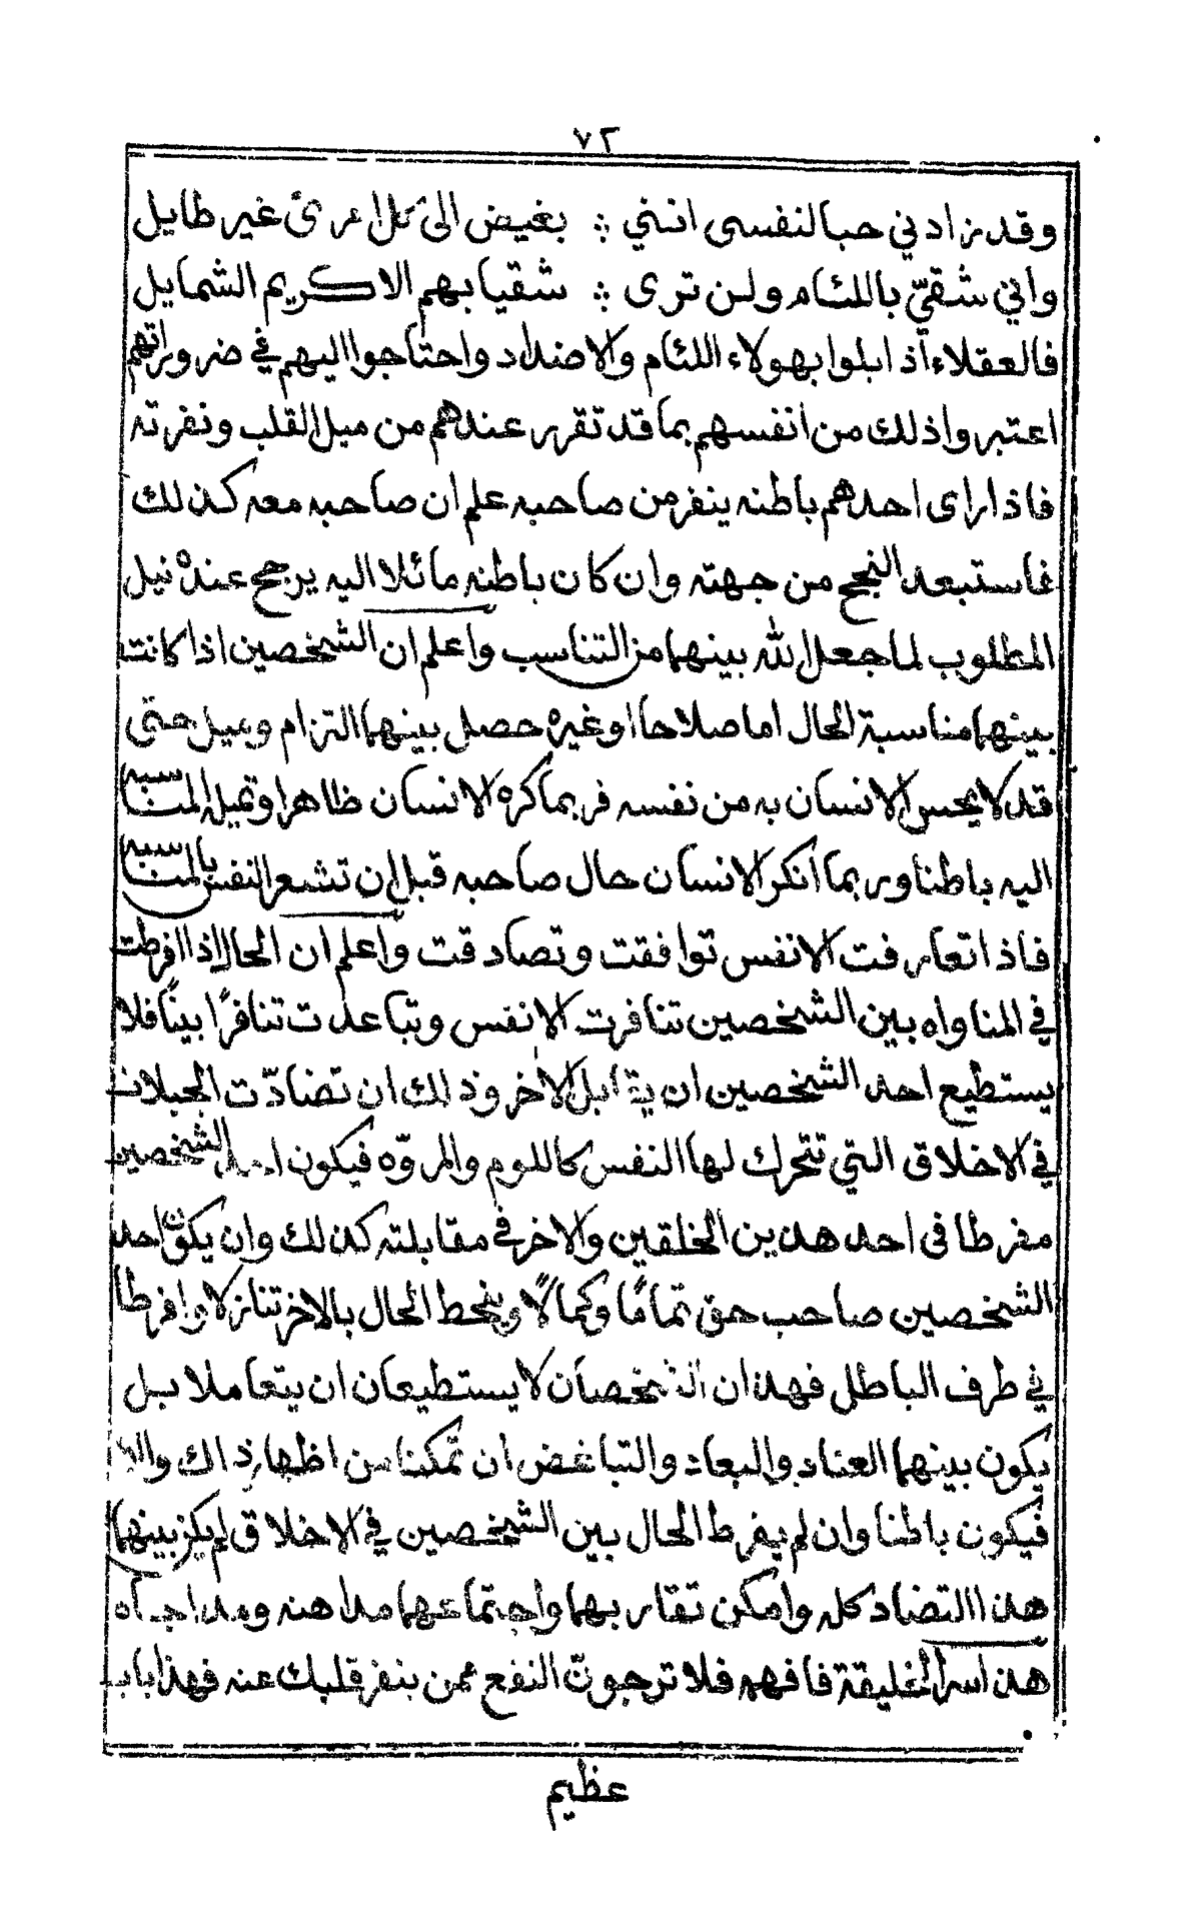 ٧٢
وقد زادني حبا لنفسي انني ؛ بغيض الى كل امرئ غير طايل
واني شقيّ باللئام ولن ترى ؛ شقيا بهم الا كريم الشمايل
فالعقلاء اذ ابلوا بهولاء اللئام والاضداد واحتاجوا اليهم في ضروراتهم
اعتبروا ذلك من انفسهم بما قد تقرر عندهم من ميل القلب ونفرته
فاذا راى احدهم باطنه ينفر من صاحبه علم ان صاحبه معه كذلك
فاستبعد النجح من جهته وان كان باطنه مائلا اليه يرجح عنده نيل
المطلوب لما جعل الله بينهما من التناسب واعلم ان الشخصين اذا كانت
بينهما مناسبة الحال اما صلاحا او غيره حصل بينهما التزام وميل حتى
قد لا يحس الانسان به من نفسه فربما كره الانسان ظاهرا وتميل المناسبه
اليه باطنا وربما انكر الانسان حال صاحبه قبل ان تشعر النفس بالمناسبه
فاذا تعارفت الانفس توافقت وتصادقت واعلم ان الحال اذا افرطت
في المناواه بين الشخصين تنافرت الانفس وتباعدت تنافرًا بينًا فلا
يستطيع احد الشخصين ان يقابل الاخر وذلك ان تضادّت الجبلات
في الاخلاق التي تتحرك لها النفس كاللوم والمروّه فيكون احد الشخصين
مفرطا في احد هذين الخلقين والاخر في مقابلته كذلك وان يكون احد
الشخصين صاحب حق تمامًا وكمالًا وينحط الحال بالاخر تنازلا وافرطا
في طرف الباطل فهذان الشخصان لا يستطيعان ان يتعاملا بل
يكون بينهما العناد والبعاد والتباغض ان تمكنا من اظهار ذلك والا
فيكون باطنا وان لم يفرط الحال بين الشخصين في الاخلاق لم يكن بينهما
هذا التضاد كله وامكن تقاربهما واجتماعهما مداهنه ومداجاه
هذا سر الخليقة فافهم فلا ترجونّ النفع ممن ينفر قلبك عنه فهذا باب
عظيم